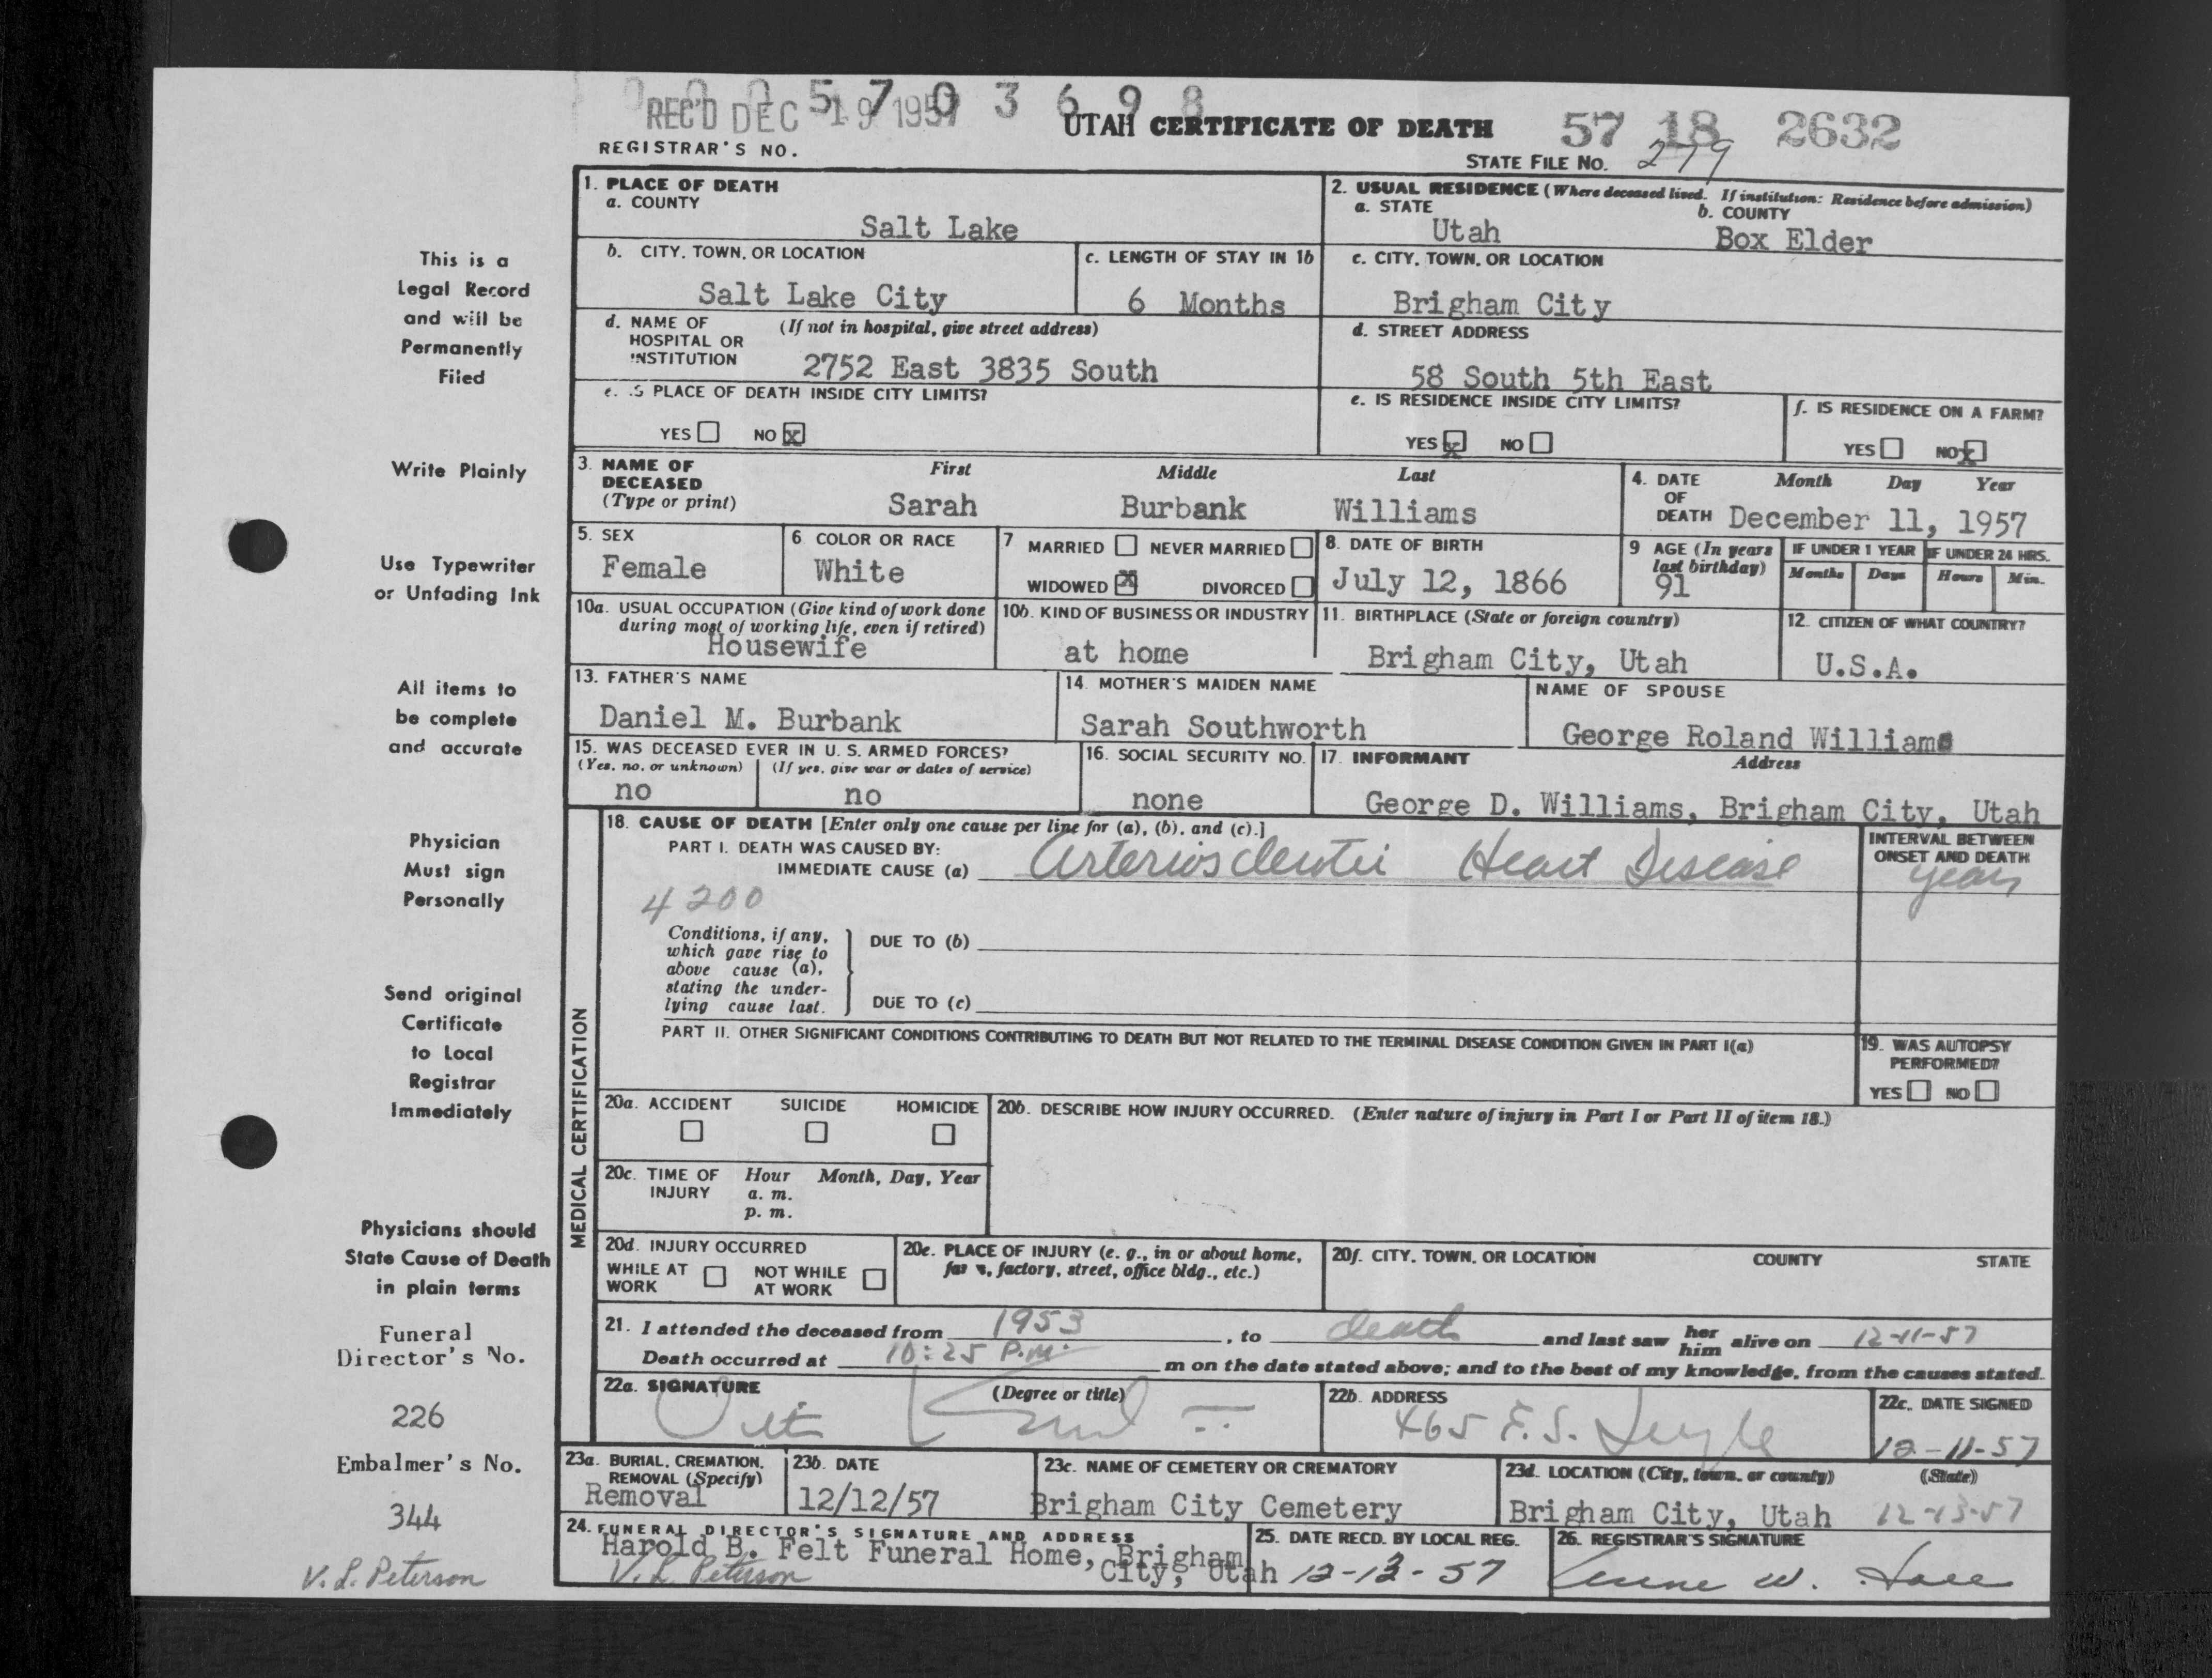 0 0 0 5 7 0 3 6 9 8
REC'D DEC 19 1957
UTAH CERTIFICATE OF DEATH
57 18 2632
REGISTRAR'S NO.
STATE FILE NO. 279
1. PLACE OF DEATH
a. COUNTY
Salt Lake
2. USUAL RESIDENCE (Where deceased lived. If institution: Residence before admission)
a. STATE
Utah
b. COUNTY
Box Elder
b. CITY, TOWN, OR LOCATION
Salt Lake City
c. LENGTH OF STAY IN 1b
6 Months
c. CITY, TOWN, OR LOCATION
Brigham City
d. NAME OF HOSPITAL OR INSTITUTION
(If not in hospital, give street address)
2752 East 3835 South
d. STREET ADDRESS
58 South 5th East
e. IS PLACE OF DEATH INSIDE CITY LIMITS?
YES NO X
e. IS RESIDENCE INSIDE CITY LIMITS?
YES X NO
f. IS RESIDENCE ON A FARM?
YES NO X
3. NAME OF DECEASED
(Type or print)
First
Sarah
Middle
Burbank
Last
Williams
4. DATE OF DEATH
Month Day Year
December 11, 1957
5. SEX
Female
6 COLOR OR RACE
White
7 MARRIED NEVER MARRIED
WIDOWED X DIVORCED
8. DATE OF BIRTH
July 12, 1866
9 AGE (In years last birthday)
91
IF UNDER 1 YEAR
Months Days
IF UNDER 24 HRS.
Hours Min.
10a. USUAL OCCUPATION (Give kind of work done during most of working life, even if retired)
Housewife
10b. KIND OF BUSINESS OR INDUSTRY
at home
11. BIRTHPLACE (State or foreign country)
Brigham City, Utah
12. CITIZEN OF WHAT COUNTRY?
U.S.A.
13. FATHER'S NAME
Daniel M. Burbank
14. MOTHER'S MAIDEN NAME
Sarah Southworth
NAME OF SPOUSE
George Roland Williams
15. WAS DECEASED EVER IN U. S. ARMED FORCES?
(Yes, no, or unknown)
no
(If yes, give war or dates of service)
no
16. SOCIAL SECURITY NO.
none
17. INFORMANT
Address
George D. Williams, Brigham City, Utah
MEDICAL CERTIFICATION
18. CAUSE OF DEATH [Enter only one cause per line for (a), (b), and (c).]
PART I. DEATH WAS CAUSED BY:
IMMEDIATE CAUSE (a) Arteriosclerotic Heart Disease
INTERVAL BETWEEN ONSET AND DEATH
years
4200
Conditions, if any, which gave rise to above cause (a), stating the underlying cause last.
DUE TO (b)
DUE TO (c)
PART II. OTHER SIGNIFICANT CONDITIONS CONTRIBUTING TO DEATH BUT NOT RELATED TO THE TERMINAL DISEASE CONDITION GIVEN IN PART I(a)
19. WAS AUTOPSY PERFORMED?
YES NO
20a. ACCIDENT SUICIDE HOMICIDE
20b. DESCRIBE HOW INJURY OCCURRED. (Enter nature of injury in Part I or Part II of item 18.)
20c. TIME OF INJURY
Hour Month, Day, Year
a. m.
p. m.
20d. INJURY OCCURRED
WHILE AT WORK
NOT WHILE AT WORK
20e. PLACE OF INJURY (e. g., in or about home, farm, factory, street, office bldg., etc.)
20f. CITY, TOWN, OR LOCATION COUNTY STATE
21. I attended the deceased from 1953, to death and last saw her him alive on 12-11-57
Death occurred at 10:25 P.M. m on the date stated above; and to the best of my knowledge, from the causes stated.
22a. SIGNATURE
(Degree or title)
22b. ADDRESS
465 E. S. Temple
22c. DATE SIGNED
12-11-57
23a. BURIAL, CREMATION, REMOVAL (Specify)
Removal
23b. DATE
12/12/57
23c. NAME OF CEMETERY OR CREMATORY
Brigham City Cemetery
23d. LOCATION (City, town, or county) (State)
Brigham City, Utah 12-13-57
24. FUNERAL DIRECTOR'S SIGNATURE AND ADDRESS
Harold B. Felt Funeral Home, Brigham City, Utah
V. L. Peterson
25. DATE RECD. BY LOCAL REG.
12-13-57
26. REGISTRAR'S SIGNATURE
This is a
Legal Record
and will be
Permanently
Filed
Write Plainly
Use Typewriter
or Unfading Ink
All items to
be complete
and accurate
Physician
Must sign
Personally
Send original
Certificate
to Local
Registrar
Immediately
Physicians should
State Cause of Death
in plain terms
Funeral
Director's No.
226
Embalmer's No.
344
V. L. Peterson